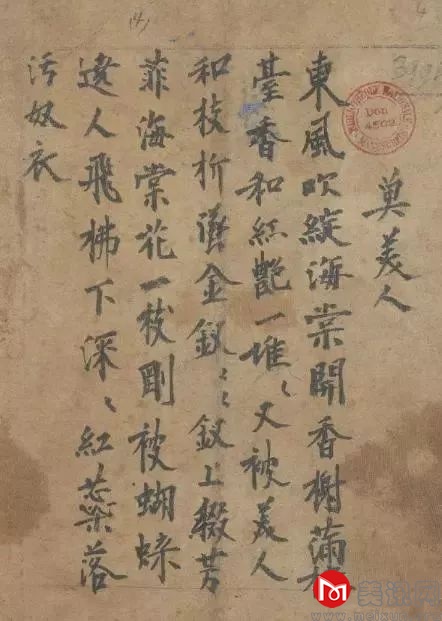 (4)
DON
4502
美人
東風吹綻海棠開香榭滿
臺香和紅艷一堆〻又被美人
和枝折墜金釵〻釵上綴芳
菲海棠花一枝剛被蝴蝶
遶人飛拂下深〻紅蕊落
污奴衣